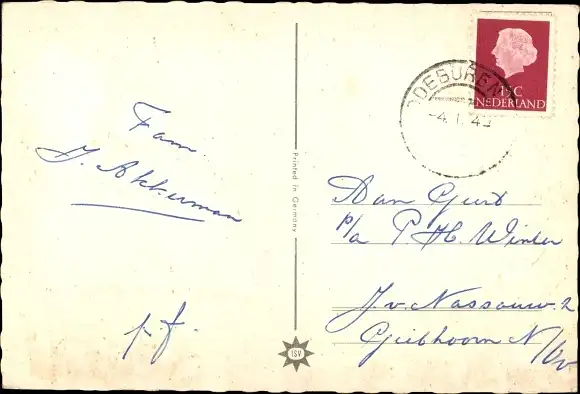 Fam.
J. Akkerman
p.f.
Printed in Germany
ISV
15C
NEDERLAND
-4.1.4
Aan Geert
p/a P. H. Winter
J. v. Nassouw. 2
Giethoorn N/Ov